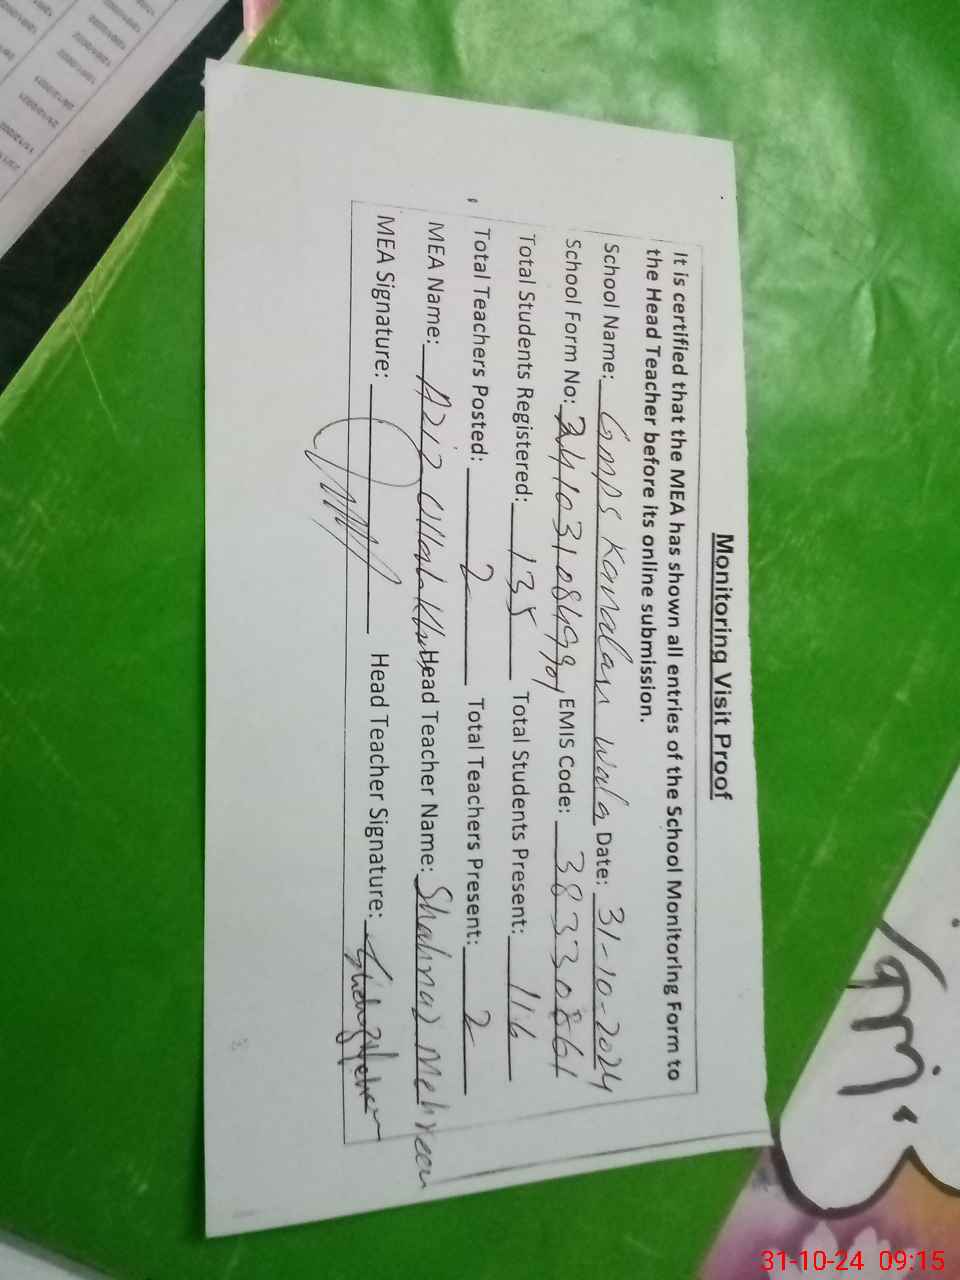 Monitoring Visit Proof
It is certified that the MEA has shown all entries of the School Monitoring Form to
the Head Teacher before its online submission.
School Name: Gmps Kandan Wala Date: 31-10-2024
School Form No: EMIS Code: 38330861
Total Students Registered: 135 Total Students Present: 116
Total Teachers Posted: 2 Total Teachers Present: 2
MEA Name: Aziz Head Teacher Name: Shahnaz Mehreen
MEA Signature: Head Teacher Signature:
31-10-24 09:15